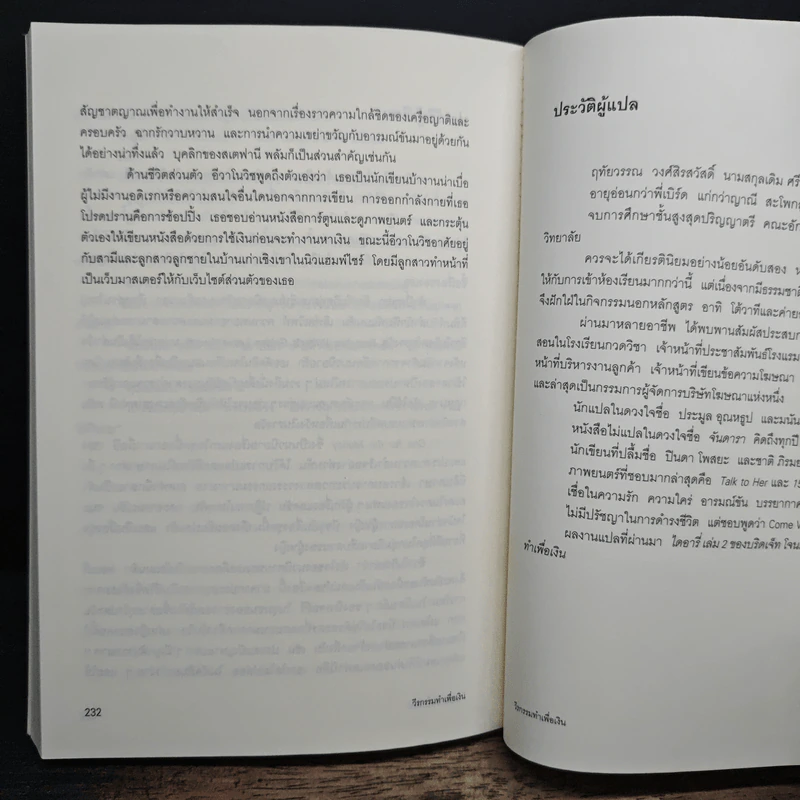 สัญชาตญาณเพื่อทำงานให้สำเร็จ นอกจากเรื่องราวความใกล้ชิดของเครือญาติและ
ครอบครัว ฉากรักวาบหวาน และการนำความเขย่าขวัญกับอารมณ์ขันมาอยู่ด้วยกัน
ได้อย่างน่าทึ่งแล้ว บุคลิกของสเตฟานี พลัมก็เป็นส่วนสำคัญเช่นกัน
ด้านชีวิตส่วนตัว อีวาโนวิชพูดถึงตัวเองว่า เธอเป็นนักเขียนบ้างานน่าเบื่อ
ผู้ไม่มีงานอดิเรกหรือความสนใจอื่นใดนอกจากการเขียน การออกกำลังกายที่เธอ
โปรดปรานคือการช้อปปิ้ง เธอชอบอ่านหนังสือการ์ตูนและดูภาพยนตร์ และกระตุ้น
ตัวเองให้เขียนหนังสือด้วยการใช้เงินก่อนจะทำงานหาเงิน ขณะนี้อีวาโนวิชอาศัยอยู่
กับสามีและลูกสาวลูกชายในบ้านเก่าเชิงเขาในนิวแฮมพ์ไชร์ โดยมีลูกสาวทำหน้าที่
เป็นเว็บมาสเตอร์ให้กับเว็บไซต์ส่วนตัวของเธอ
232
วีรกรรมทำเพื่อเงิน
ประวัติผู้แปล
ฤทัยวรรณ วงศ์สิรสวัสดิ์ นามสกุลเดิม ศรี
อายุอ่อนกว่าพี่เบิร์ด แก่กว่าญาณี
จบการศึกษาชั้นสูงสุดปริญญาตรี
วิทยาลัย
ควรจะได้เกียรตินิยมอย่างน้อยอันดับสอง
ให้กับการเข้าห้องเรียนมากกว่านี้ แต่เนื่องจากมีธรรมชาติ
จึงฝักใฝ่ในกิจกรรมนอกหลักสูตร อาทิ โต้วาทีและค่าย
ผ่านมาหลายอาชีพ ได้พบพานสัมผัสประสบก
สอนในโรงเรียนกวดวิชา เจ้าหน้าที่ประชาสัมพันธ์โรงแรม
หน้าที่บริหารงานลูกค้า เจ้าหน้าที่เขียนข้อความโฆษณา
และล่าสุดเป็นกรรมการผู้จัดการบริษัทโฆษณาแห่งหนึ่ง
นักแปลในดวงใจชื่อ ประมูล อุณหธูป และมนัน
หนังสือไม่แปลในดวงใจชื่อ จันดารา คิดถึงทุกปี
นักเขียนที่ปลื้มชื่อ ปินดา โพสยะ และชาติ ภิรมย
ภาพยนตร์ที่ชอบมากล่าสุดคือ Talk to Her และ 15
เชื่อในความรัก ความใคร่ อารมณ์ขัน บรรยากาศ
ไม่มีปรัชญาในการดำรงชีวิต แต่ชอบพูดว่า Come
ผลงานแปลที่ผ่านมา ไดอารี่ เล่ม 2 ของบริดเจ็ท โจน
ทำเพื่อเงิน
วีรกรรมทำเพื่อเงิน